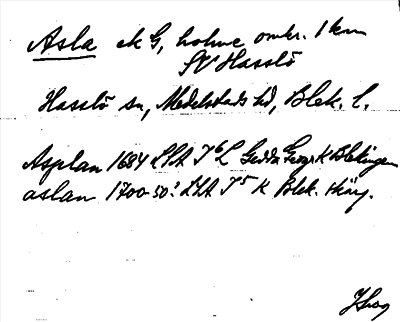 Asla ek G, holme omkr. 1 km
SV Hasslö
Hasslö sn, Medelstads hd, Blek. l.
Asplan 1684 LSA I 6 L Gedda Geogr K Blekingen
aslan 1700-50? LSA I 5 K Blek. skärg.